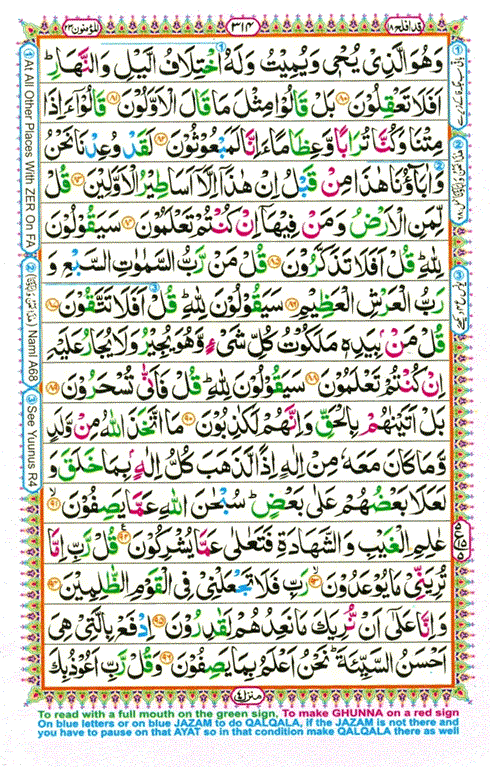 قد افلح ١٨
٣١٤
المؤمنون ٢٣
وَهُوَ الَّذِیْ یُحْیٖ وَیُمِیْتُ وَلَهُ اخْتِلَافُ الَّیْلِ وَالنَّهَارِ ؕ
اَفَلَا تَعْقِلُوْنَ ۝۸۰ بَلْ قَالُوْا مِثْلَ مَا قَالَ الْاَوَّلُوْنَ ۝۸۱ قَالُوْۤا ءَاِذَا
مِتْنَا وَكُنَّا تُرَابًا وَّعِظَامًا ءَاِنَّا لَمَبْعُوْثُوْنَ ۝۸۲ لَقَدْ وُعِدْنَا نَحْنُ
وَاٰبَآؤُنَا هٰذَا مِنْ قَبْلُ اِنْ هٰذَاۤ اِلَّاۤ اَسَاطِیْرُ الْاَوَّلِیْنَ ۝۸۳ قُلْ
لِّمَنِ الْاَرْضُ وَمَنْ فِیْهَاۤ اِنْ كُنْتُمْ تَعْلَمُوْنَ ۝۸۴ سَیَقُوْلُوْنَ
لِلّٰهِ ؕ قُلْ اَفَلَا تَذَكَّرُوْنَ ۝۸۵ قُلْ مَنْ رَّبُّ السَّمٰوٰتِ السَّبْعِ وَ
رَبُّ الْعَرْشِ الْعَظِیْمِ ۝۸۶ سَیَقُوْلُوْنَ لِلّٰهِ ؕ قُلْ اَفَلَا تَتَّقُوْنَ ۝۸۷
قُلْ مَنْۢ بِیَدِهٖ مَلَكُوْتُ كُلِّ شَیْءٍ وَّهُوَ یُجِیْرُ وَلَا یُجَارُ عَلَیْهِ
اِنْ كُنْتُمْ تَعْلَمُوْنَ ۝۸۸ سَیَقُوْلُوْنَ لِلّٰهِ ؕ قُلْ فَاَنّٰی تُسْحَرُوْنَ ۝۸۹
بَلْ اَتَیْنٰهُمْ بِالْحَقِّ وَاِنَّهُمْ لَكٰذِبُوْنَ ۝۹۰ مَا اتَّخَذَ اللّٰهُ مِنْ وَّلَدٍ
وَّمَا كَانَ مَعَهٗ مِنْ اِلٰهٍ اِذًا لَّذَهَبَ كُلُّ اِلٰهٍۭ بِمَا خَلَقَ وَ
لَعَلَا بَعْضُهُمْ عَلٰی بَعْضٍ ؕ سُبْحٰنَ اللّٰهِ عَمَّا یَصِفُوْنَ ۝۹۱
عٰلِمِ الْغَیْبِ وَالشَّهَادَةِ فَتَعٰلٰی عَمَّا یُشْرِكُوْنَ ۝۹۲ قُلْ رَّبِّ اِمَّا
تُرِیَنِّیْ مَا یُوْعَدُوْنَ ۝۹۳ رَبِّ فَلَا تَجْعَلْنِیْ فِی الْقَوْمِ الظّٰلِمِیْنَ ۝۹۴
وَاِنَّا عَلٰۤی اَنْ نُّرِیَكَ مَا نَعِدُهُمْ لَقٰدِرُوْنَ ۝۹۵ اِدْفَعْ بِالَّتِیْ هِیَ
اَحْسَنُ السَّیِّئَةَ ؕ نَحْنُ اَعْلَمُ بِمَا یَصِفُوْنَ ۝۹۶ وَقُلْ رَّبِّ اَعُوْذُ بِكَ
منزل ٤
① At All Other Places With ZER On FA
② Naml A68
③ See Yuunus R4
To read with a full mouth on the green sign, To make GHUNNA on a red sign
On blue letters or on blue JAZAM to do QALQALA, if the JAZAM is not there and
you have to pause on that AYAT so in that condition make QALQALA there as well